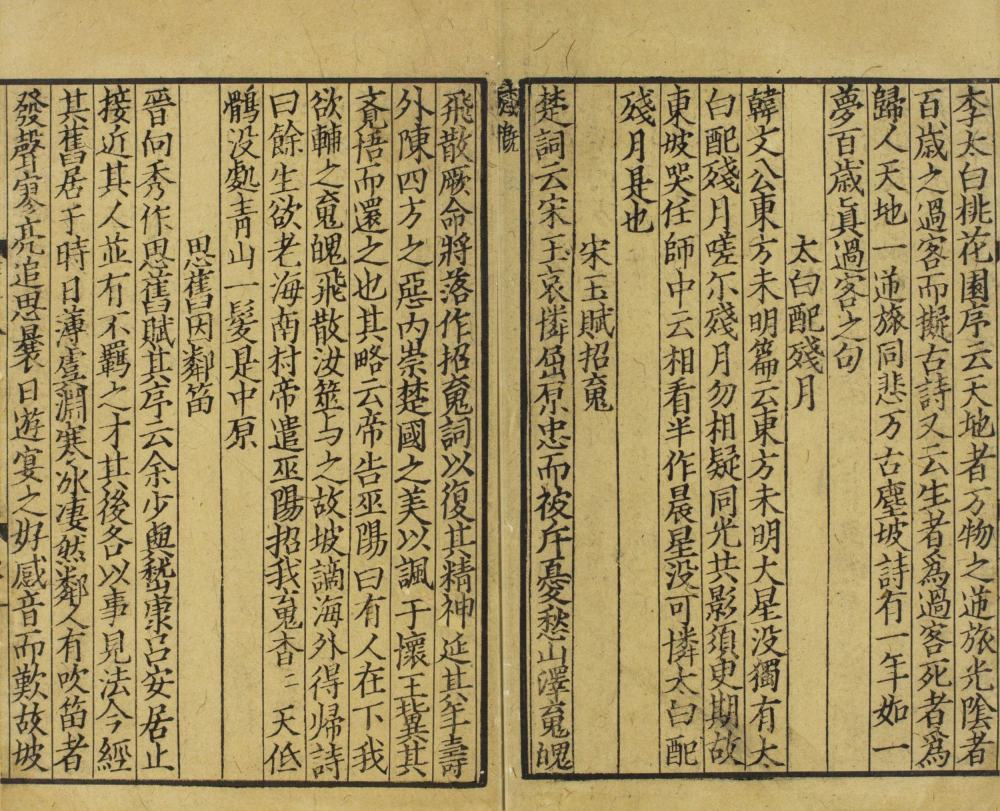 李太白桃花園序云天地者万物之逆旅光陰者
百歳之過客而擬古詩又云生者爲過客死者爲
歸人天地一逆旅同悲万古塵坡詩有一年如一
夢百歳眞過客之句
太白配殘月
韓文公東方未明篇云東方未明大星没獨有太
白配殘月嗟尓殘月勿相疑同光共影須臾期故
東坡哭任師中云相看半作晨星没可憐太白配
殘月是也
宋玉賦招䰟
楚詞云宋玉哀憐屈原忠而被斥憂愁山澤䰟魄
飛散厥命將落作招䰟詞以復其精神延其年壽
外陳四方之惡内崇楚國之美以諷于懷王兾其
覺悟而還之也其略云帝告巫陽曰有人在下我
欲輔之䰟魄飛散汝筮与之故坡謫海外得帰詩
曰餘生欲老海南村帝遣巫陽招我䰟杳〻天低
鶻没處青山一髮是中原
思舊因鄰笛
晉向秀作思舊賦其序云余少與嵇康吕安居止
接近其人並有不羈之才其後各以事見法今經
其舊居于時日薄虞淵寒冰凄然鄰人有吹笛者
發聲寥亮追思曩日遊宴之好感音而歎故坡